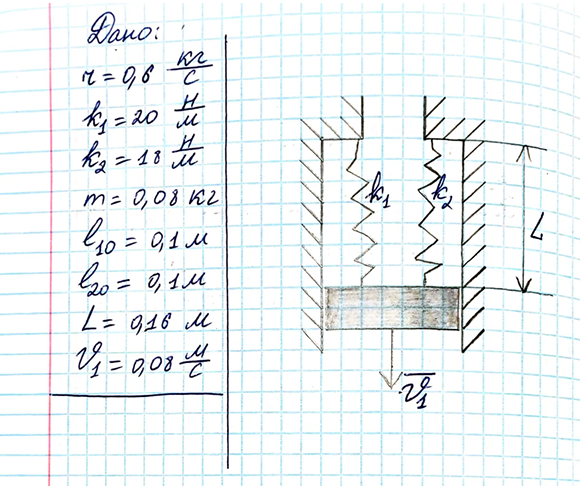 Дано:
r = 0,6 кг/с
k₁ = 20 Н/м
k₂ = 18 Н/м
m = 0,08 кг
l₁₀ = 0,1 м
l₂₀ = 0,1 м
L = 0,16 м
V₁ = 0,08 м/с
k₁
k₂
L
V̅₁